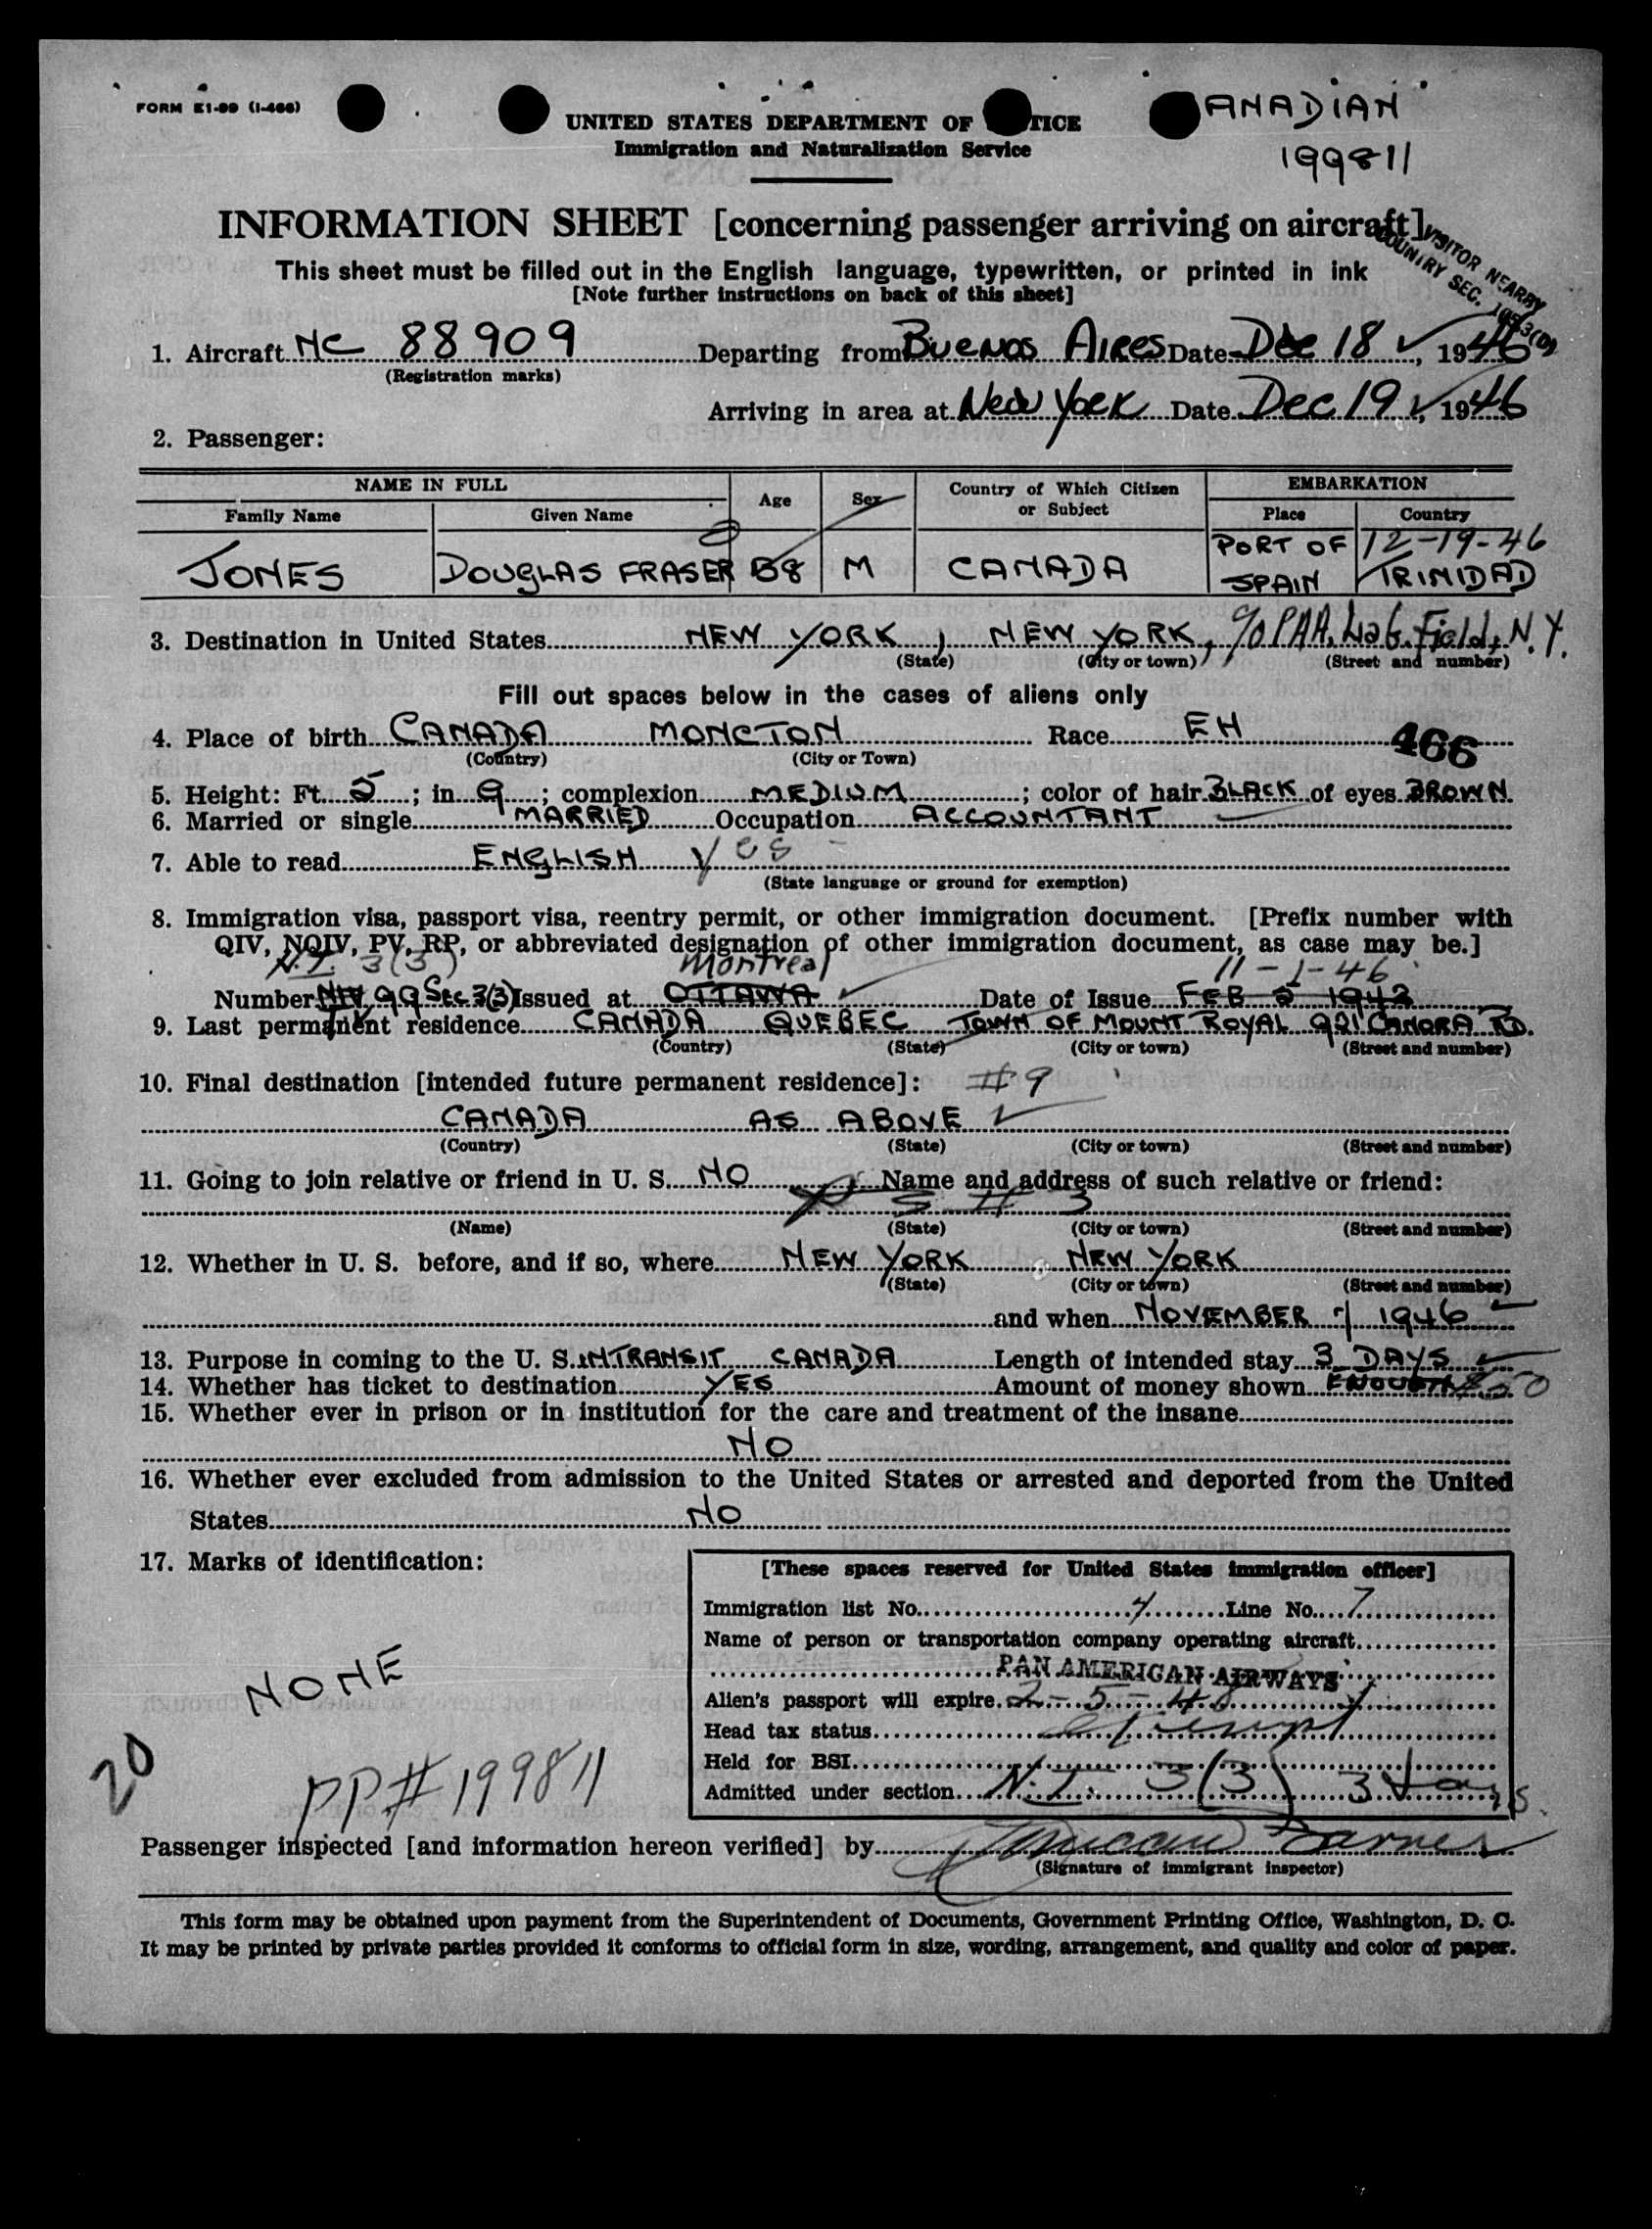 FORM E1-89 (I-466)
ANADIAN
UNITED STATES DEPARTMENT OF TICE
Immigration and Naturalization Service
199811
INFORMATION SHEET [concerning passenger arriving on aircraft]
VISITOR NEARBY
COUNTRY SEC.
This sheet must be filled out in the English language, typewritten, or printed in ink
[Note further instructions on back of this sheet]
1. Aircraft NC 88909 Departing from Buenos Aires Date Dec 18, 1946
(Registration marks)
Arriving in area at New York Date Dec 19, 1946
2. Passenger:
NAME IN FULL Age Sex Country of Which Citizen or Subject EMBARKATION
Family Name Given Name Place Country
12-19-46
JONES DOUGLAS FRASER 38 M CANADA PORT OF SPAIN TRINIDAD
3. Destination in United States NEW YORK, NEW YORK, c/o PAA, LaG. Field, N.Y.
(State) (City or town) (Street and number)
Fill out spaces below in the cases of aliens only
4. Place of birth CANADA MONCTON Race EH 466
(Country) (City or Town)
5. Height: Ft. 5; in. 9; complexion MEDIUM; color of hair BLACK of eyes BROWN.
6. Married or single MARRIED Occupation ACCOUNTANT
7. Able to read ENGLISH Yes
(State language or ground for exemption)
8. Immigration visa, passport visa, reentry permit, or other immigration document. [Prefix number with
QIV, NQIV, PV, RP, or abbreviated designation of other immigration document, as case may be.]
N.I. 3(3) Montreal 11-1-46
Number 99 Sec 3(3) Issued at OTTAWA Date of Issue FEB 5 1942
9. Last permanent residence CANADA QUEBEC TOWN OF MOUNT ROYAL 921 CANORA RD.
(Country) (State) (City or town) (Street and number)
10. Final destination [intended future permanent residece]: #9
CANADA AS ABOVE
(Country) (State) (City or town) (Street and number)
11. Going to join relative or friend in U. S. NO Name and address of such relative or friend:
S # 3
(Name) (State) (City or town) (Street and number)
12. Whether in U. S. before, and if so, where NEW YORK NEW YORK
(State) (City or town) (Street and number)
and when NOVEMBER 7 1946
13. Purpose in coming to the U. S. INTRANSIT CANADA Length of intended stay 3 DAYS
14. Whether has ticket to destination YES Amount of money shown ENOUGH $50
15. Whether ever in prison or in institution for the care and treatment of the insane
NO
16. Whether ever excluded from admission to the United States or arrested and deported from the United
States NO
17. Marks of identification:
NONE
20
PP# 199811
[These spaces reserved for United States immigration officer]
Immigration list No. 4 Line No. 7
Name of person or transportation company operating aircraft
PAN AMERICAN AIRWAYS
Alien's passport will expire 2-5-48
Head tax status exempt
Held for BSI
Admitted under section N.I. 3(3) 3 days.
Passenger inspected [and information hereon verified] by
(Signature of immigrant inspector)
This form may be obtained upon payment from the Superintendent of Documents, Government Printing Office, Washington, D. C.
It may be printed by private parties provided it conforms to official form in size, wording, arrangement, and quality and color of paper.